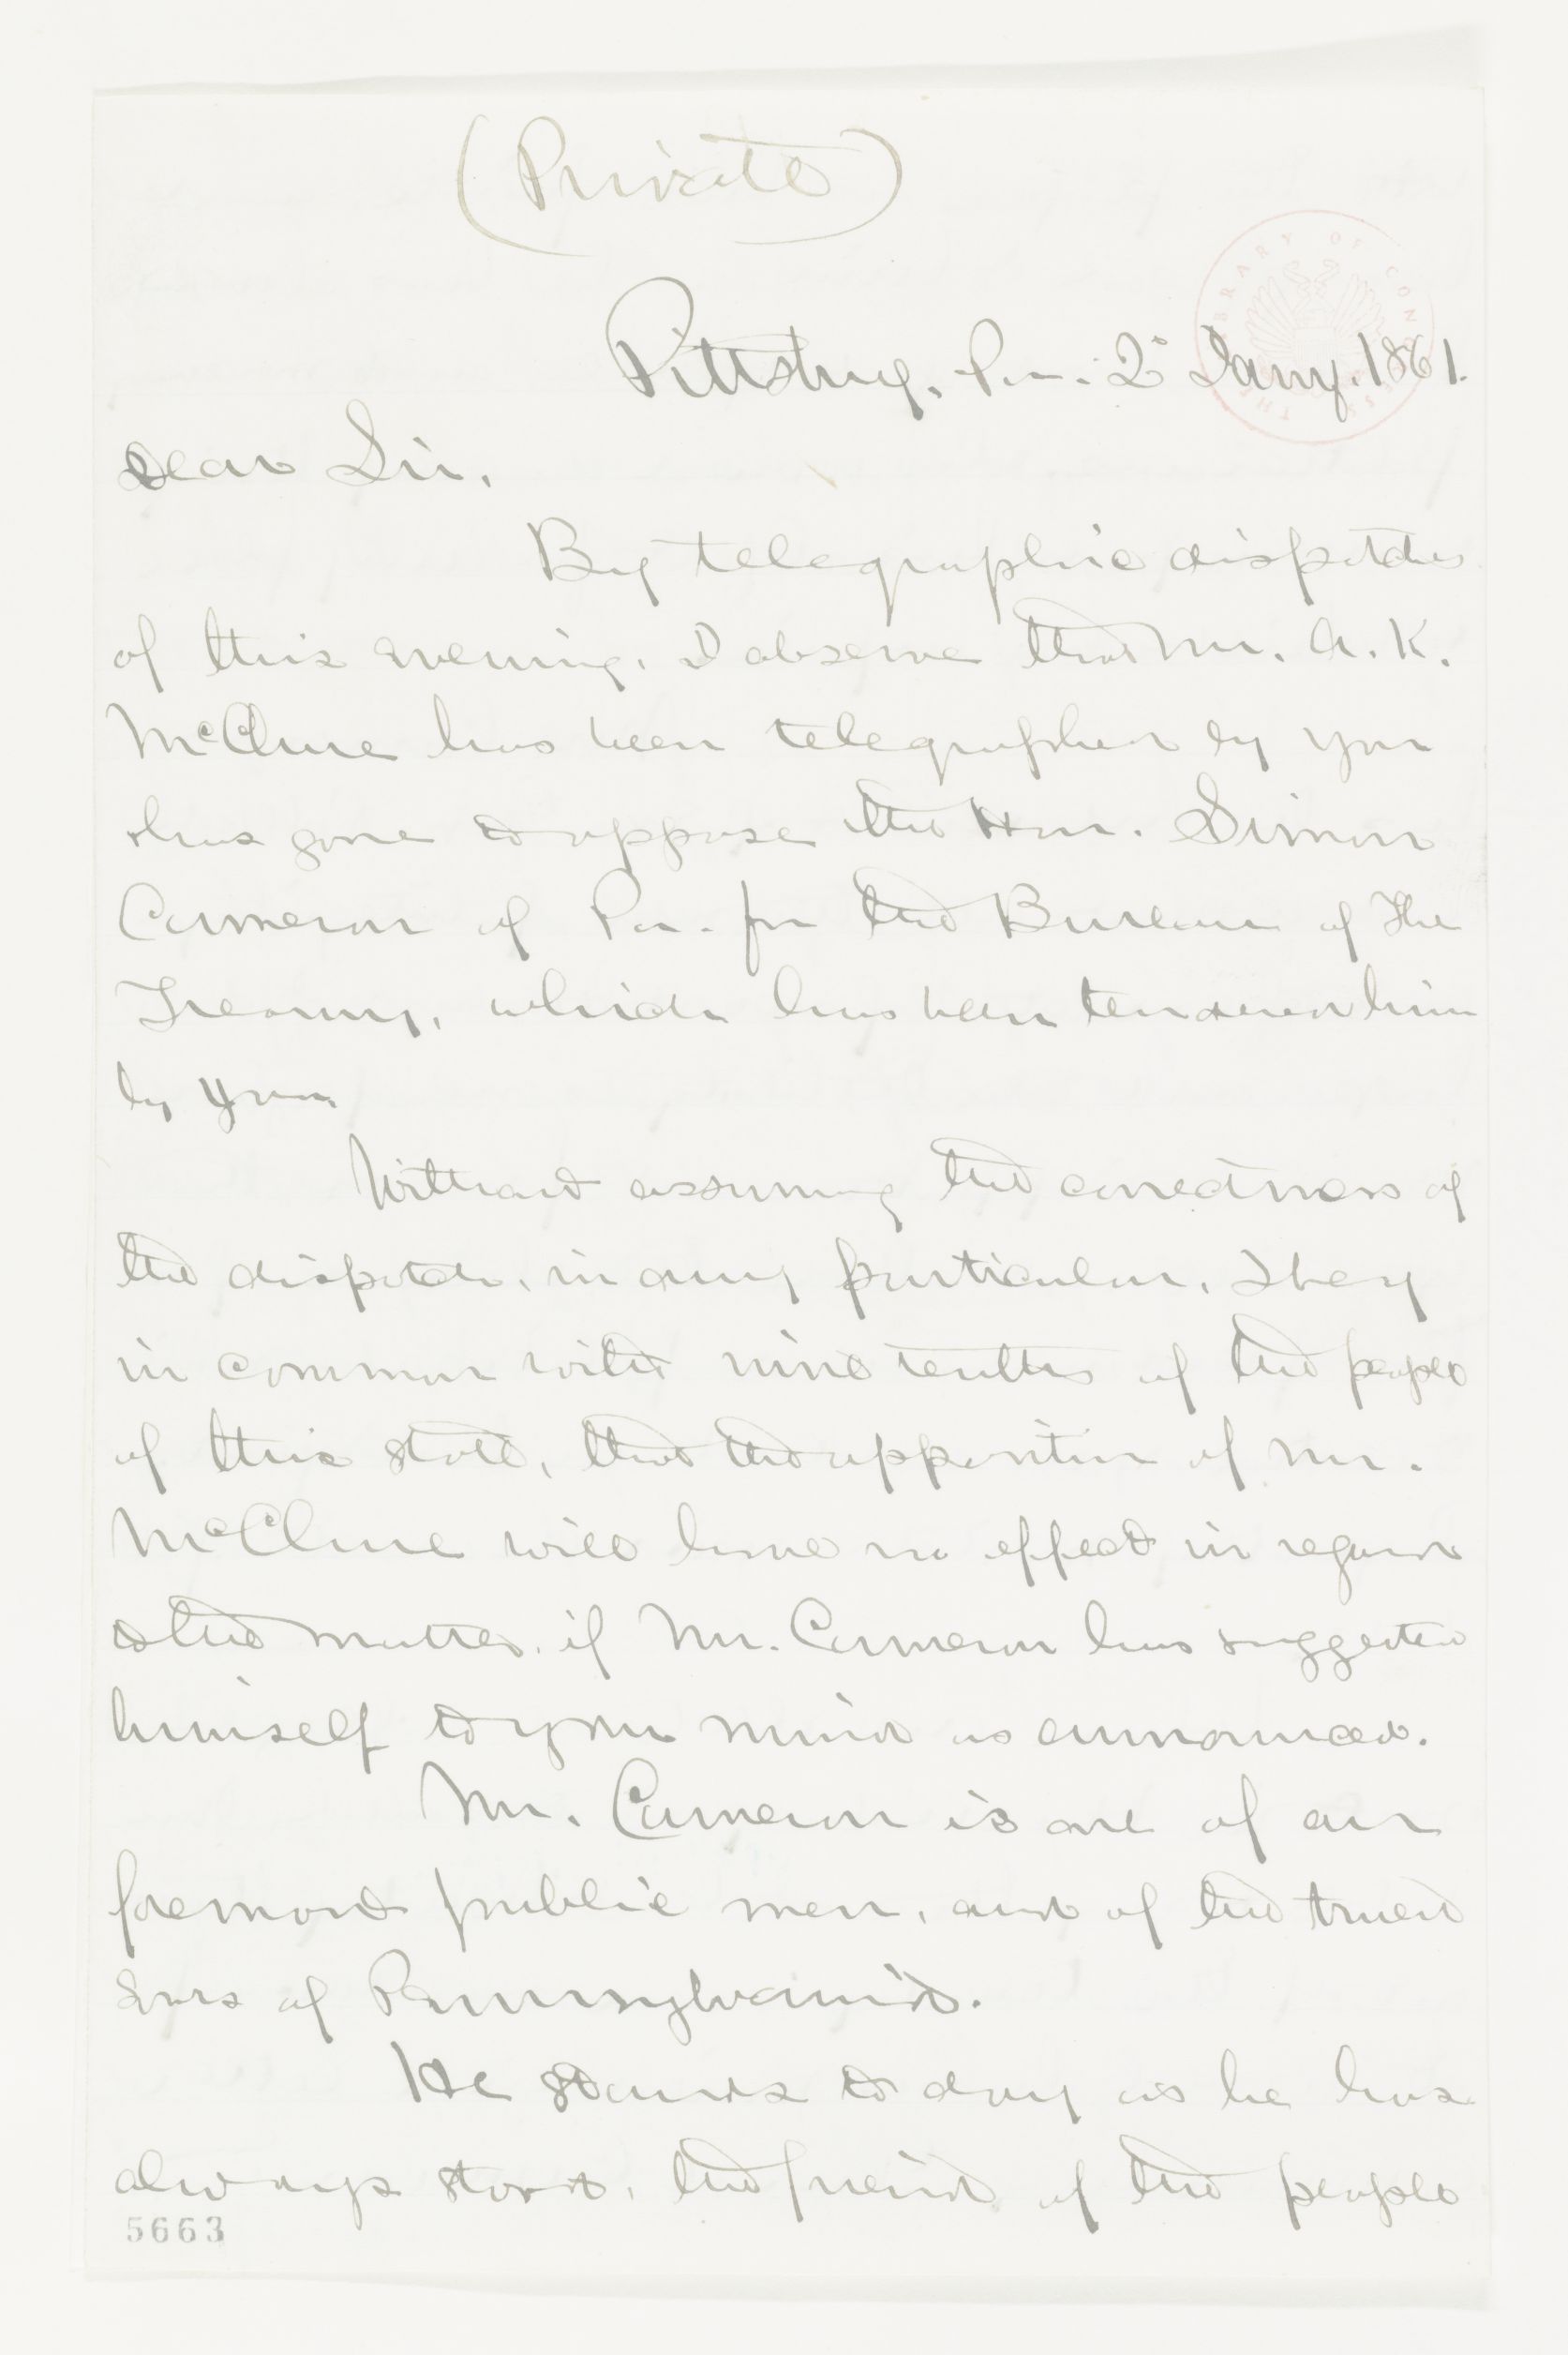 (Private)
Pittsburg, Pa. 2° Jany. 1861.
Dear Sir,
By telegraphic dispatches
of this evening, I observe that Mr. A. K.
McClure has been telegraphed by you
& has gone to oppose the Hon. Simon
Cameron of Pa. for the Bureau of the
Treasury, which has been tendered him
by you.
Without assuming the correctness of
the dispatch, in any particular, I beg
in common with nine tenths of the people
of this state, that the opposition of Mr.
McClure will have no effect in regard
to the matter, if Mr. Cameron has suggested
himself to your mind as announced.
Mr. Cameron is one of our
foremost public men, and of the truest
sons of Pennsylvania.
He stands to day as he has
always stood, the friend of the people
5663
THE LIBRARY OF CONGRESS